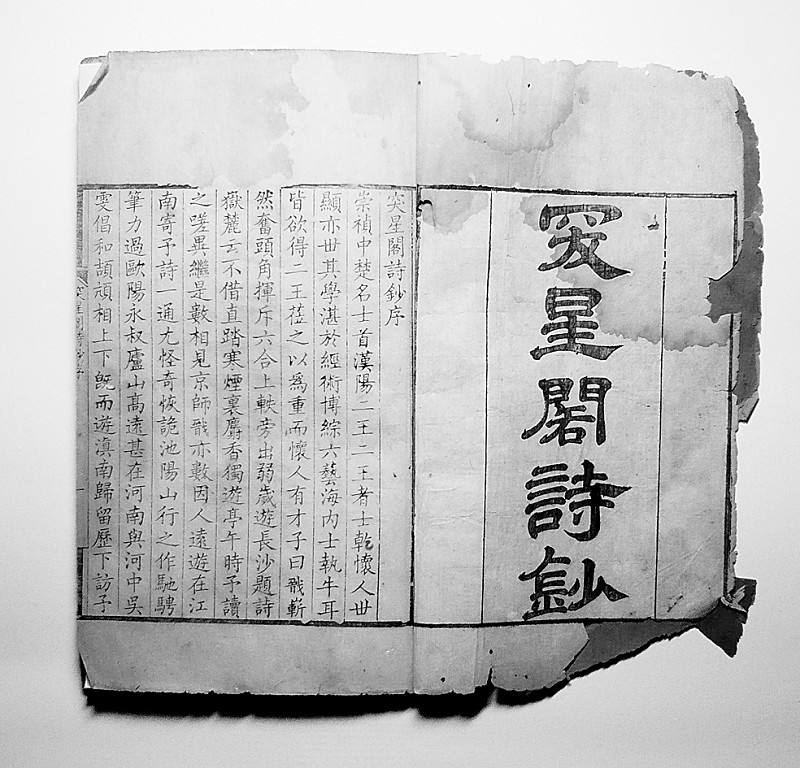 突星閣詩鈔
突星閣詩鈔序
崇禎中楚名士首漢陽二王二王者士乾懷人世
顯亦世其學湛於經術博綜六藝海內士執牛耳
皆欲得二王莅之以爲重而懷人有才子曰戩嶄
然奮頭角揮斥六合上軼旁出弱歲遊長沙題詩
嶽麓云不借直踏寒煙裏麝香獨遊亭午時予讀
之嗟異繼是數相見京師戩亦數因人遠遊在江
南寄予詩一通尤怪奇恢詭池陽山行之作馳騁
筆力過歐陽永叔廬山高遠甚在河南與河中吳
雯倡和頡頏相上下旣而遊滇南歸留歷下訪予